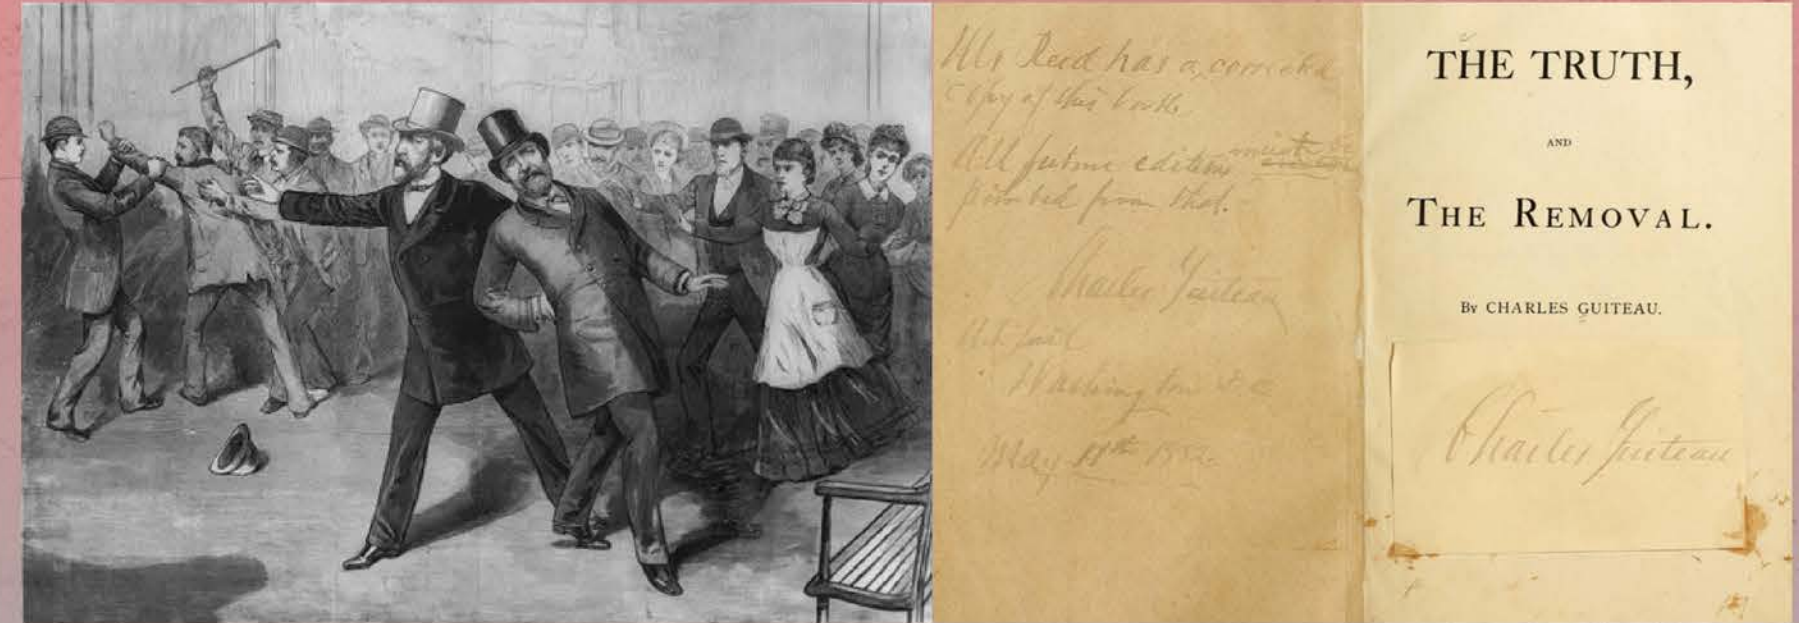 Mr Reid has a corrected
copy of this book.
All future editions must be
printed from that.
Charles Guiteau
U.S. Jail
Washington D.C.
May 1882.
THE TRUTH,
AND
THE REMOVAL.
By CHARLES GUITEAU.
Charles Guiteau